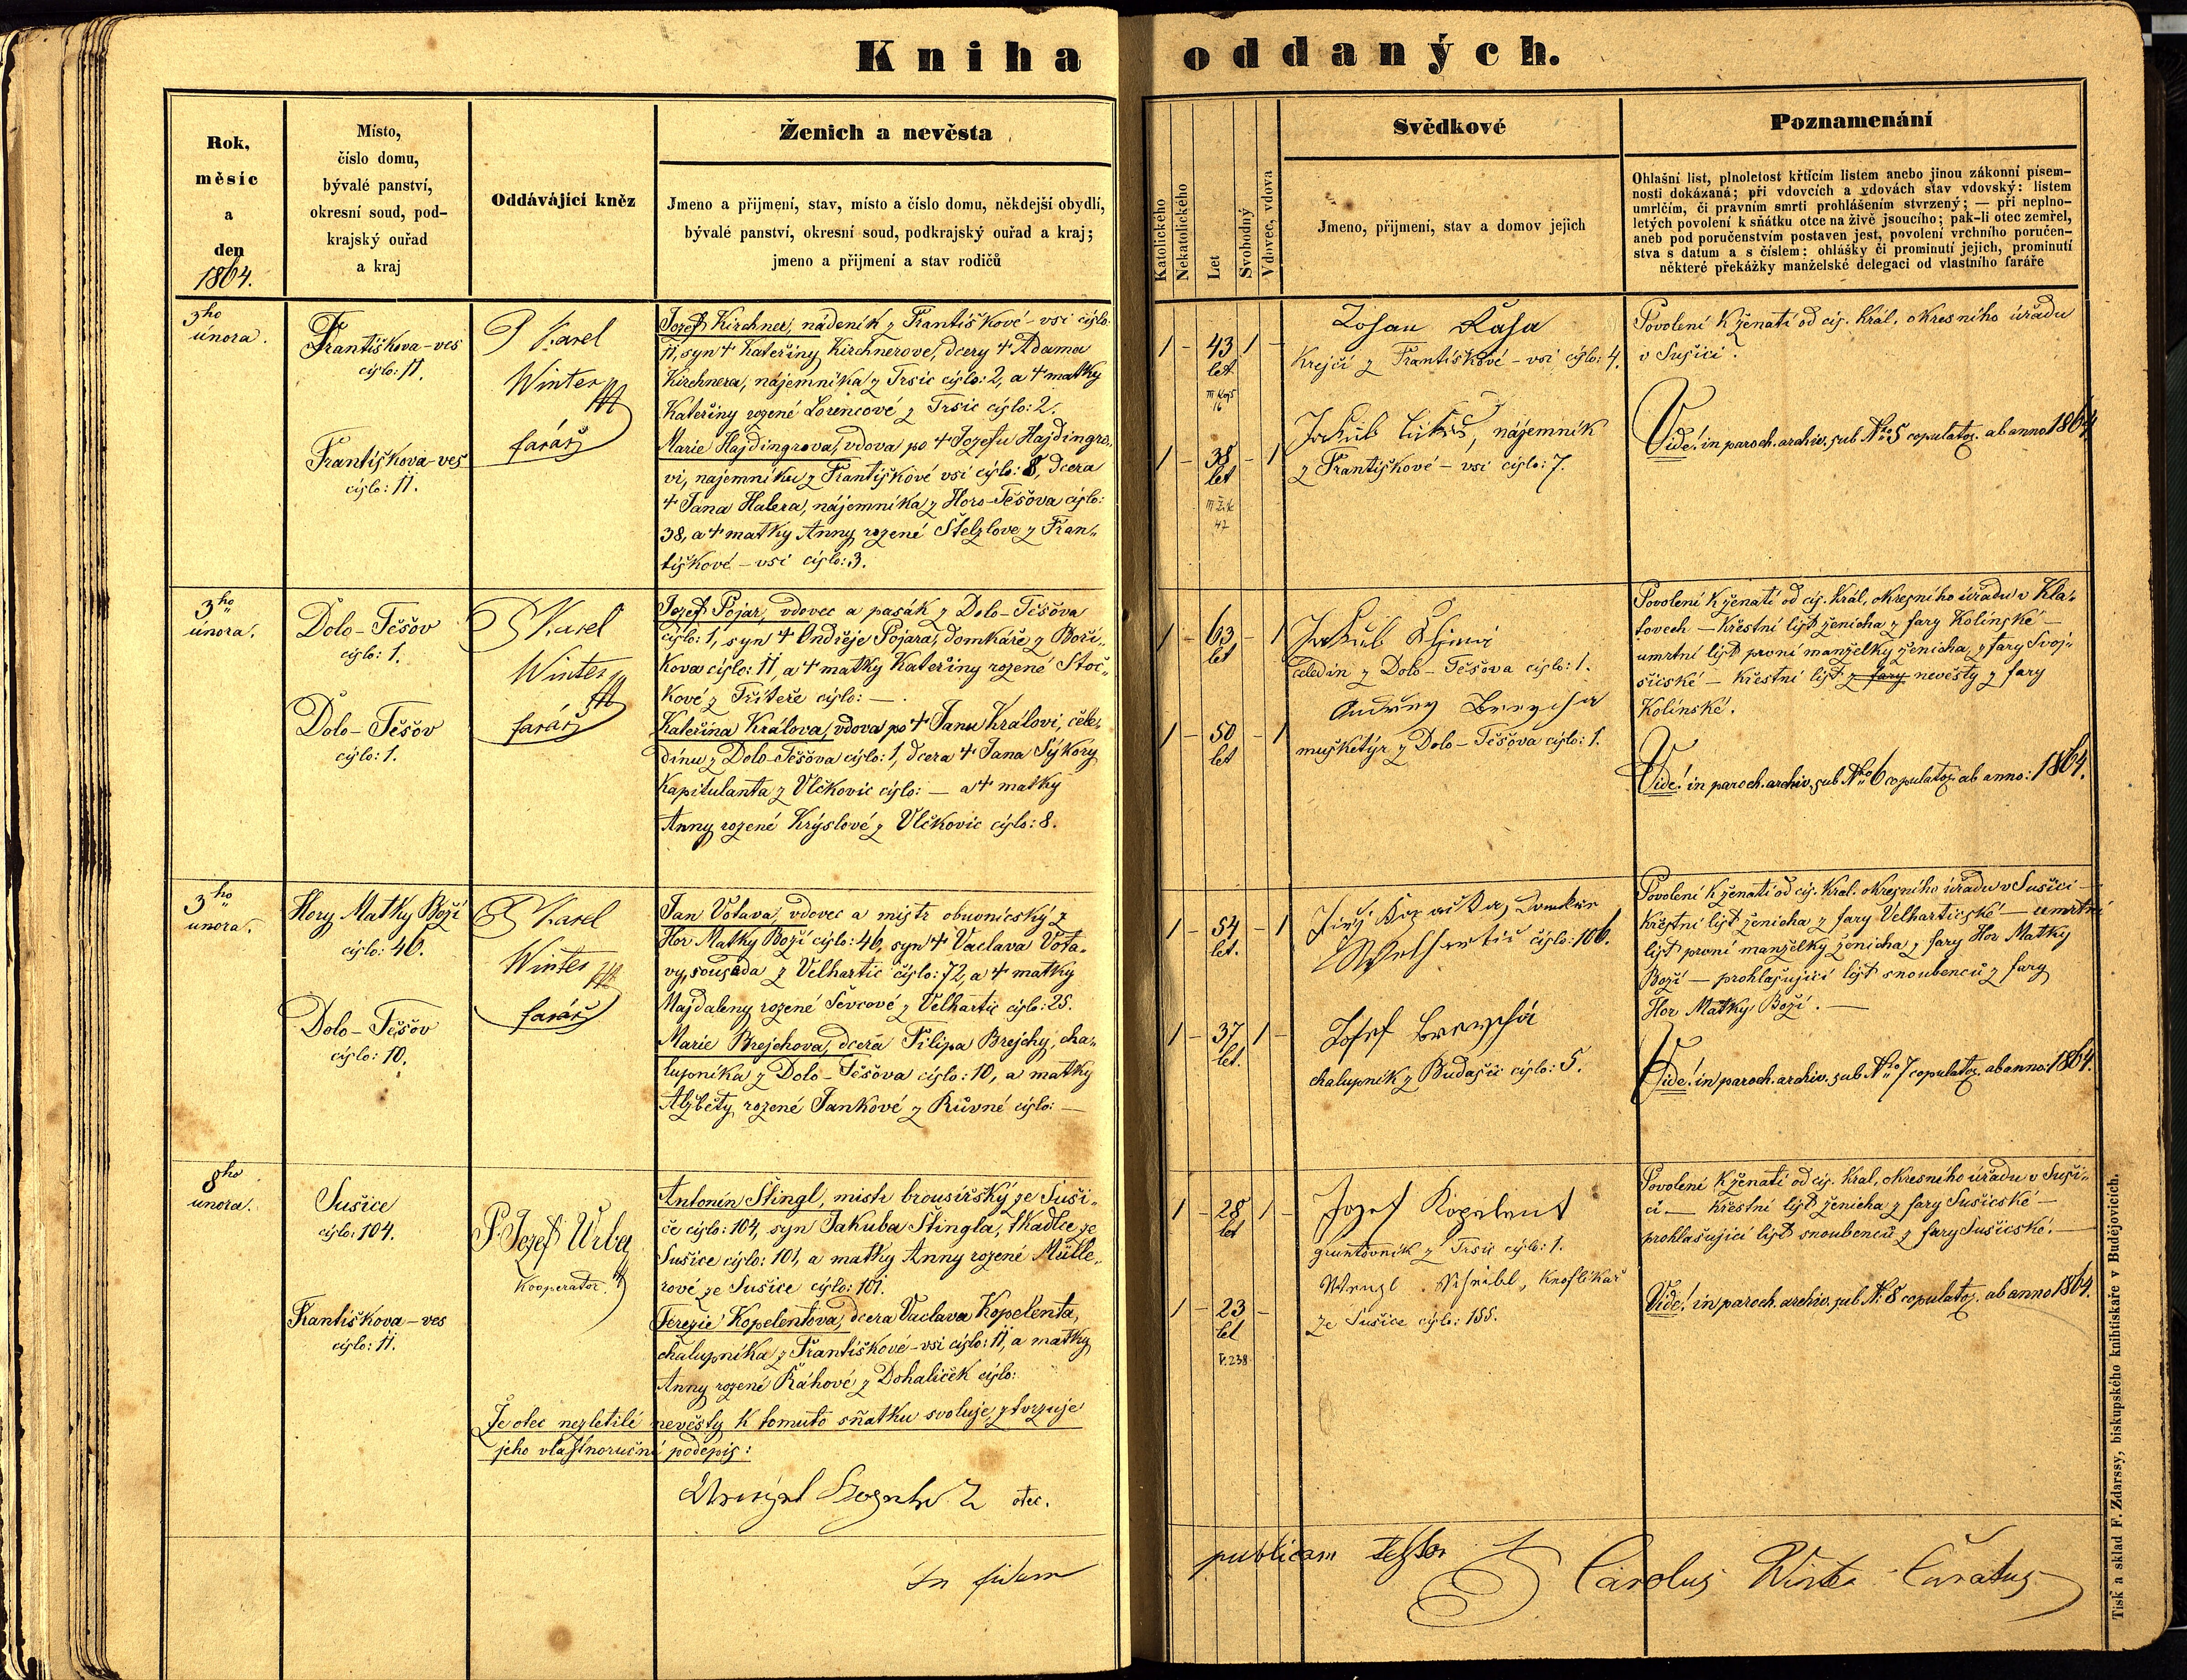 Kniha oddaných.
Rok,
měsíc
a
den
1864.
Místo,
číslo domu,
bývalé panství,
okresní soud, pod-
krajský ouřad
a kraj
Oddávající kněz
Ženich a nevěsta
Jmeno a přijmení, stav, místo a číslo domu, někdejší obydlí,
bývalé panství, okresní soud, podkrajský ouřad a kraj;
jmeno a přijmení a stav rodičů
Katolického
Nekatolického
Let
Svobodný
Vdovec, vdova
Svědkové
Jmeno, přijmení, stav a domov jejich
Poznamenání
Ohlašní list, plnoletost křtícím listem anebo jinou zákonní písem-
nosti dokázaná; při vdovcích a vdovách stav vdovský: listem
umrlčím, či právním smrti prohlášením stvrzený; — při neplno-
letých povolení k sňátku otce na živě jsoucího; pak-li otec zemřel,
aneb pod poručenstvím postaven jest, povolení vrchního poručen-
stva s datum a s číslem: ohlášky či prominutí jejich, prominutí
některé překážky manželské delegací od vlastního faráře
3ho
února.
Františkova-ves
císlo: 11.
Františkova-ves
císlo: 11.
P Karel
Winter
farář
Jozef Kirchner, nádeník z Františkové-vsi císlo
11, syn + Kateřiny Kirchnerove, dcery + Adama
Kirchnera, nájemníka z Trsic císlo: 2, a + matky
Kateřiny rozené Lorencové z Trsic císlo: 2.
Marie Hajdingrova, vdova po + Jozefu Hajdingro-
vi, najemníku z Františkové vsi císlo: 8, dcera
+ Jana Halera, nájemníka z Horo-Těšova císlo:
38, a + matky Anny rozené Štelzlove z Fran-
tiškové-vsi císlo: 3.
1 – 43 1 –
let
16
1 – 38 – 1
let
47
Johan
Krejčí z Františkové-vsi císlo: 4.
Jakub, nájemník
z Františkové-vsi císlo: 7.
Povolení k ženatí od cís. král. okresního úřadu
v Sušici.
Vide! in paroch. archiv. sub No 5 copulatoz. ab anno 1864
3ho
února.
Dolo-Těšov
císlo: 1.
Dolo-Těšov
císlo: 1.
P Karel
Winter
farář
Jozef Pojar, vdovec a pasák z Dolo-Těšova
císlo: 1, syn + Ondřeje Pojara, domkáře z Boří-
kova císlo: 11, a + matky Kateřiny rozené Stoč-
kové z císlo: —.
Kateřina Králova, vdova po + Janu Královi, čele-
dínu z Dolo-Těšova císlo: 1, dcera + Jana Sýkory
kapitulanta z Vlčkovic císlo: — a + matky
Anny rozené Krýslové z Vlčkovic císlo: 8.
1 – 63 – 1
let
1 – 50 – 1
let
Jakub
čeledín z Dolo-Těšova císlo: 1.
mušketýr z Dolo-Těšova císlo: 1.
Povolení k ženatí od cís. král. okresního úřadu v Kla-
tovech — křestní list ženicha z fary Kolínské —
umrtní list první manželky ženicha z fary Svoj-
šické — křestní list z fary nevěsty z fary
Kolínské.
Vide! in paroch. archiv. sub No 6 copulatoz. ab anno: 1864.
3ho
unora.
Hory Matky Boží
císlo: 46.
Dolo-Těšov
císlo: 10.
P Karel
Winter
farář
Jan Votava, vdovec a mistr obuvnický z
Hor Matky Boží císlo: 46, syn + Vaclava Vota-
vy, souseda z Velhartic číslo: 72, a + matky
Majdaleny rozené Ševcové z Velhartic císlo: 25.
Marie Brejchova, dcera Filipa Brejchy, cha-
lupníka z Dolo-Těšova císlo: 10, a matky
Alžběty rozené Jankové z Růvné císlo: —
1 – 54 – 1
let.
1 – 37 1 –
let.
číslo: 106.
Josef
chalupník z Budašic císlo: 5.
Povolení k ženatí od cís. kral. okresního úřadu v Sušici —
křestní list ženicha z fary Velhartické — umrtní
list první manželky ženicha z fary Hor Matky
Boží — prohlašující list snoubenců z fary
Hor Matky Boží. —
Vide! in paroch. archiv. sub No 7 copulatoz. ab anno: 1864.
8ho
unora.
Sušice
číslo: 104.
Františkova-ves
císlo: 11.
P. Jozef Urba
Kooperator
Antonín Štingl, mistr brousířský ze Suši-
ce císlo: 104, syn Jakuba Štingla, tkadlce ze
Sušice císlo: 101, a matky Anny rozené Mülle-
rové ze Sušice císlo: 101.
Terezie Kopelentova, dcera Vaclava Kopelenta,
chalupníka z Františkové-vsi císlo: 11, a matky
Anny rozené Ráhové z Dohaliček císlo:
Že otec nezletilé nevěsty k tomuto sňatku svoluje, ztvrzuje
jeho vlastnoruční podepis:
otec.
1 – 28 1 –
let
1 – 23 –
let
V. 238
Jozef Kopelent
gruntovník z Trsic císlo: 1.
Wenzl, knoflíkář
ze Sušice císlo: 155.
Povolení k ženatí od cís. kral. okresního úřadu v Suši-
ci — křestní list ženicha z fary Sušické —
prohlašující list snoubenců z fary Sušické. —
Vide! in paroch. archiv. sub No: 8 copulatoz. ab anno 1864.
In fidem publicam testor P Carolus Winter Curatus
Tisk a sklad F. Zdarssy, biskupského knihtiskaře v Budějovicích.